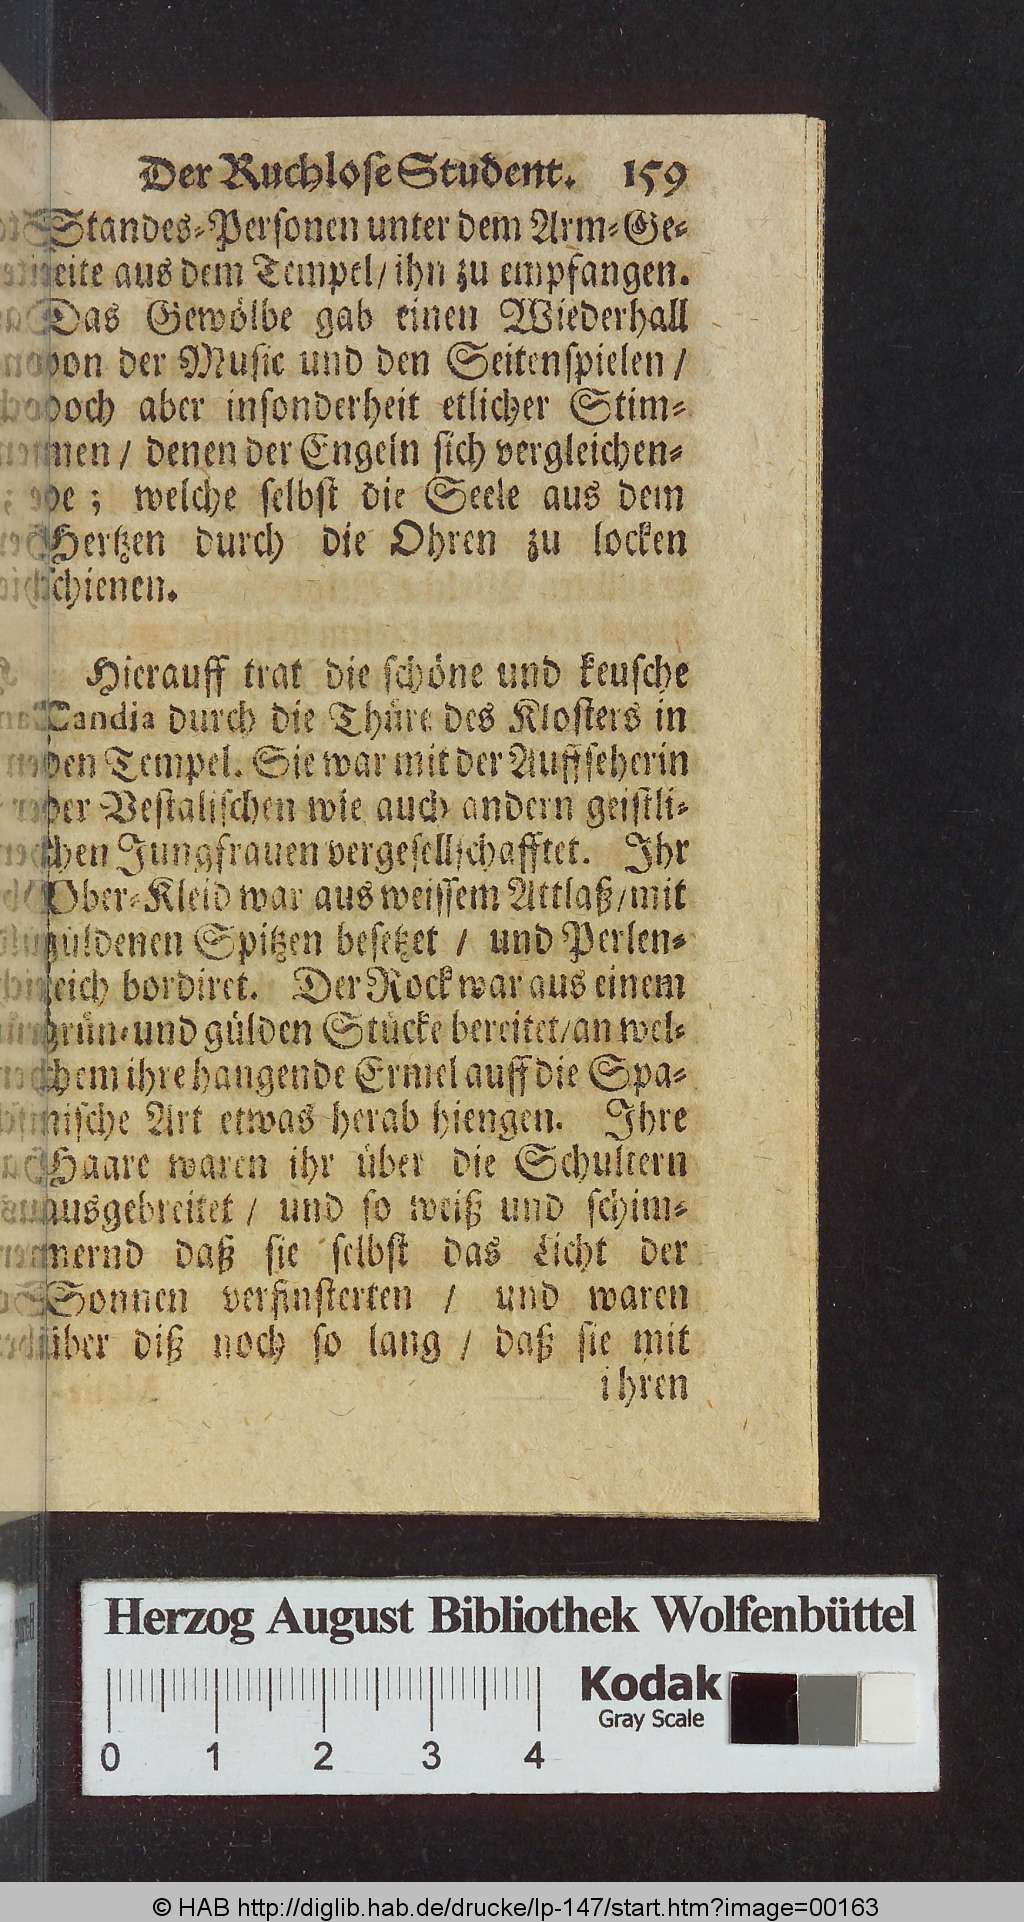 Der Ruchlose Student. 159
Standes-Personen unter dem Arm-Ge-
leite aus dem Tempel / ihn zu empfangen.
Das Gewölbe gab einen Wiederhall
von der Music und den Seitenspielen /
doch aber insonderheit etlicher Stim-
men / denen der Engeln sich vergleichen-
de ; welche selbst die Seele aus dem
Hertzen durch die Ohren zu locken
schienen.
Hierauff trat die schöne und keusche
Candia durch die Thüre des Klosters in
den Tempel. Sie war mit der Auffseherin
der Vestalischen wie auch andern geistli-
chen Jungfrauen vergesellschafftet. Ihr
Ober-Kleid war aus weissem Attlaß / mit
güldenen Spitzen besetzet / und Perlen-
reich bordiret. Der Rock war aus einem
grün- und gülden Stücke bereitet / an wel-
chem ihre hangende Ermel auff die Spa-
nische Art etwas herab hiengen. Ihre
Haare waren ihr über die Schultern
ausgebreitet / und so weiß und schim-
mernd daß sie selbst das Licht der
Sonnen verfinsterten / und waren
über diß noch so lang / daß sie mit
ihren
Herzog August Bibliothek Wolfenbüttel
Kodak
Gray Scale
0 1 2 3 4
© HAB http://diglib.hab.de/drucke/lp-147/start.htm?image=00163